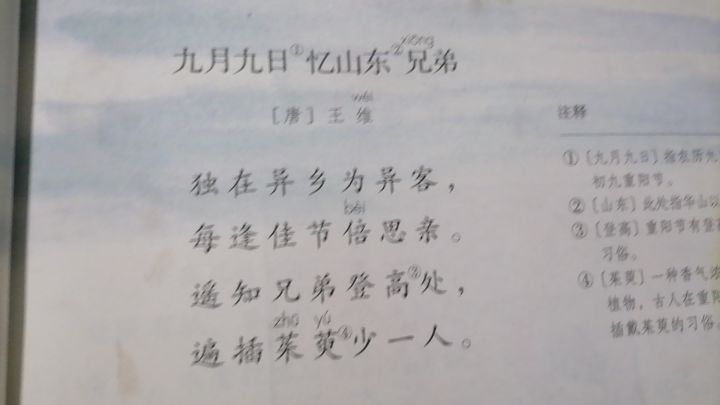 九月九日①忆山东②兄弟
xiōng
[唐] 王维
wéi
独在异乡为异客，
每逢佳节倍思亲。
bèi
遥知兄弟登高③处，
遍插茱萸④少一人。
zhū yú
注释
①〔九月九日〕指农历九
初九重阳节。
②〔山东〕此处指华山以
③〔登高〕重阳节有登高
习俗。
④〔茱萸〕一种香气浓
植物，古人在重阳
插戴茱萸的习俗。